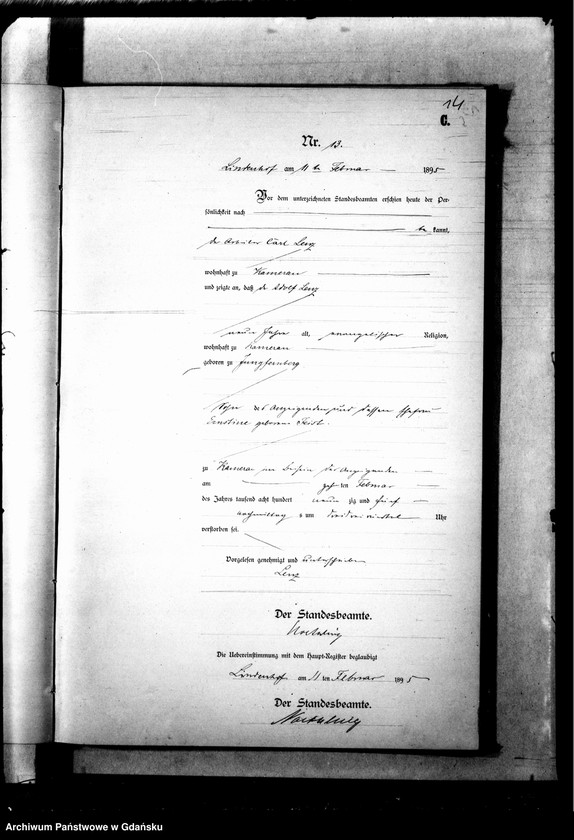 14
C.
Nr. 13.
Lindenhof am 11 ten Februar 1895
Vor dem unterzeichneten Standesbeamten erschien heute der Per-
sönlichkeit nach
be kannt,
der Arbeiter Carl Lenz
wohnhaft zu Kameran
und zeigte an, daß der Adolf Lenz
neun Jahre alt, evangelischer Religion,
wohnhaft zu Kameran
geboren zu Jungfernberg
Sohn des Anzeigenden und dessen Ehefrau
Ernstine geborene
zu Kameran im Beisein des Anzeigenden
am zehn ten Februar
des Jahres tausend acht hundert neun zig und fünf
nachmittag s um dreidreiviertel Uhr
verstorben sei.
Vorgelesen genehmigt und unterschrieben
Lenz
Der Standesbeamte.
Die Uebereinstimmung mit dem Haupt-Register beglaubigt
Lindenhof am 11 ten Februar 1895
Der Standesbeamte.
Archiwum Państwowe w Gdańsku